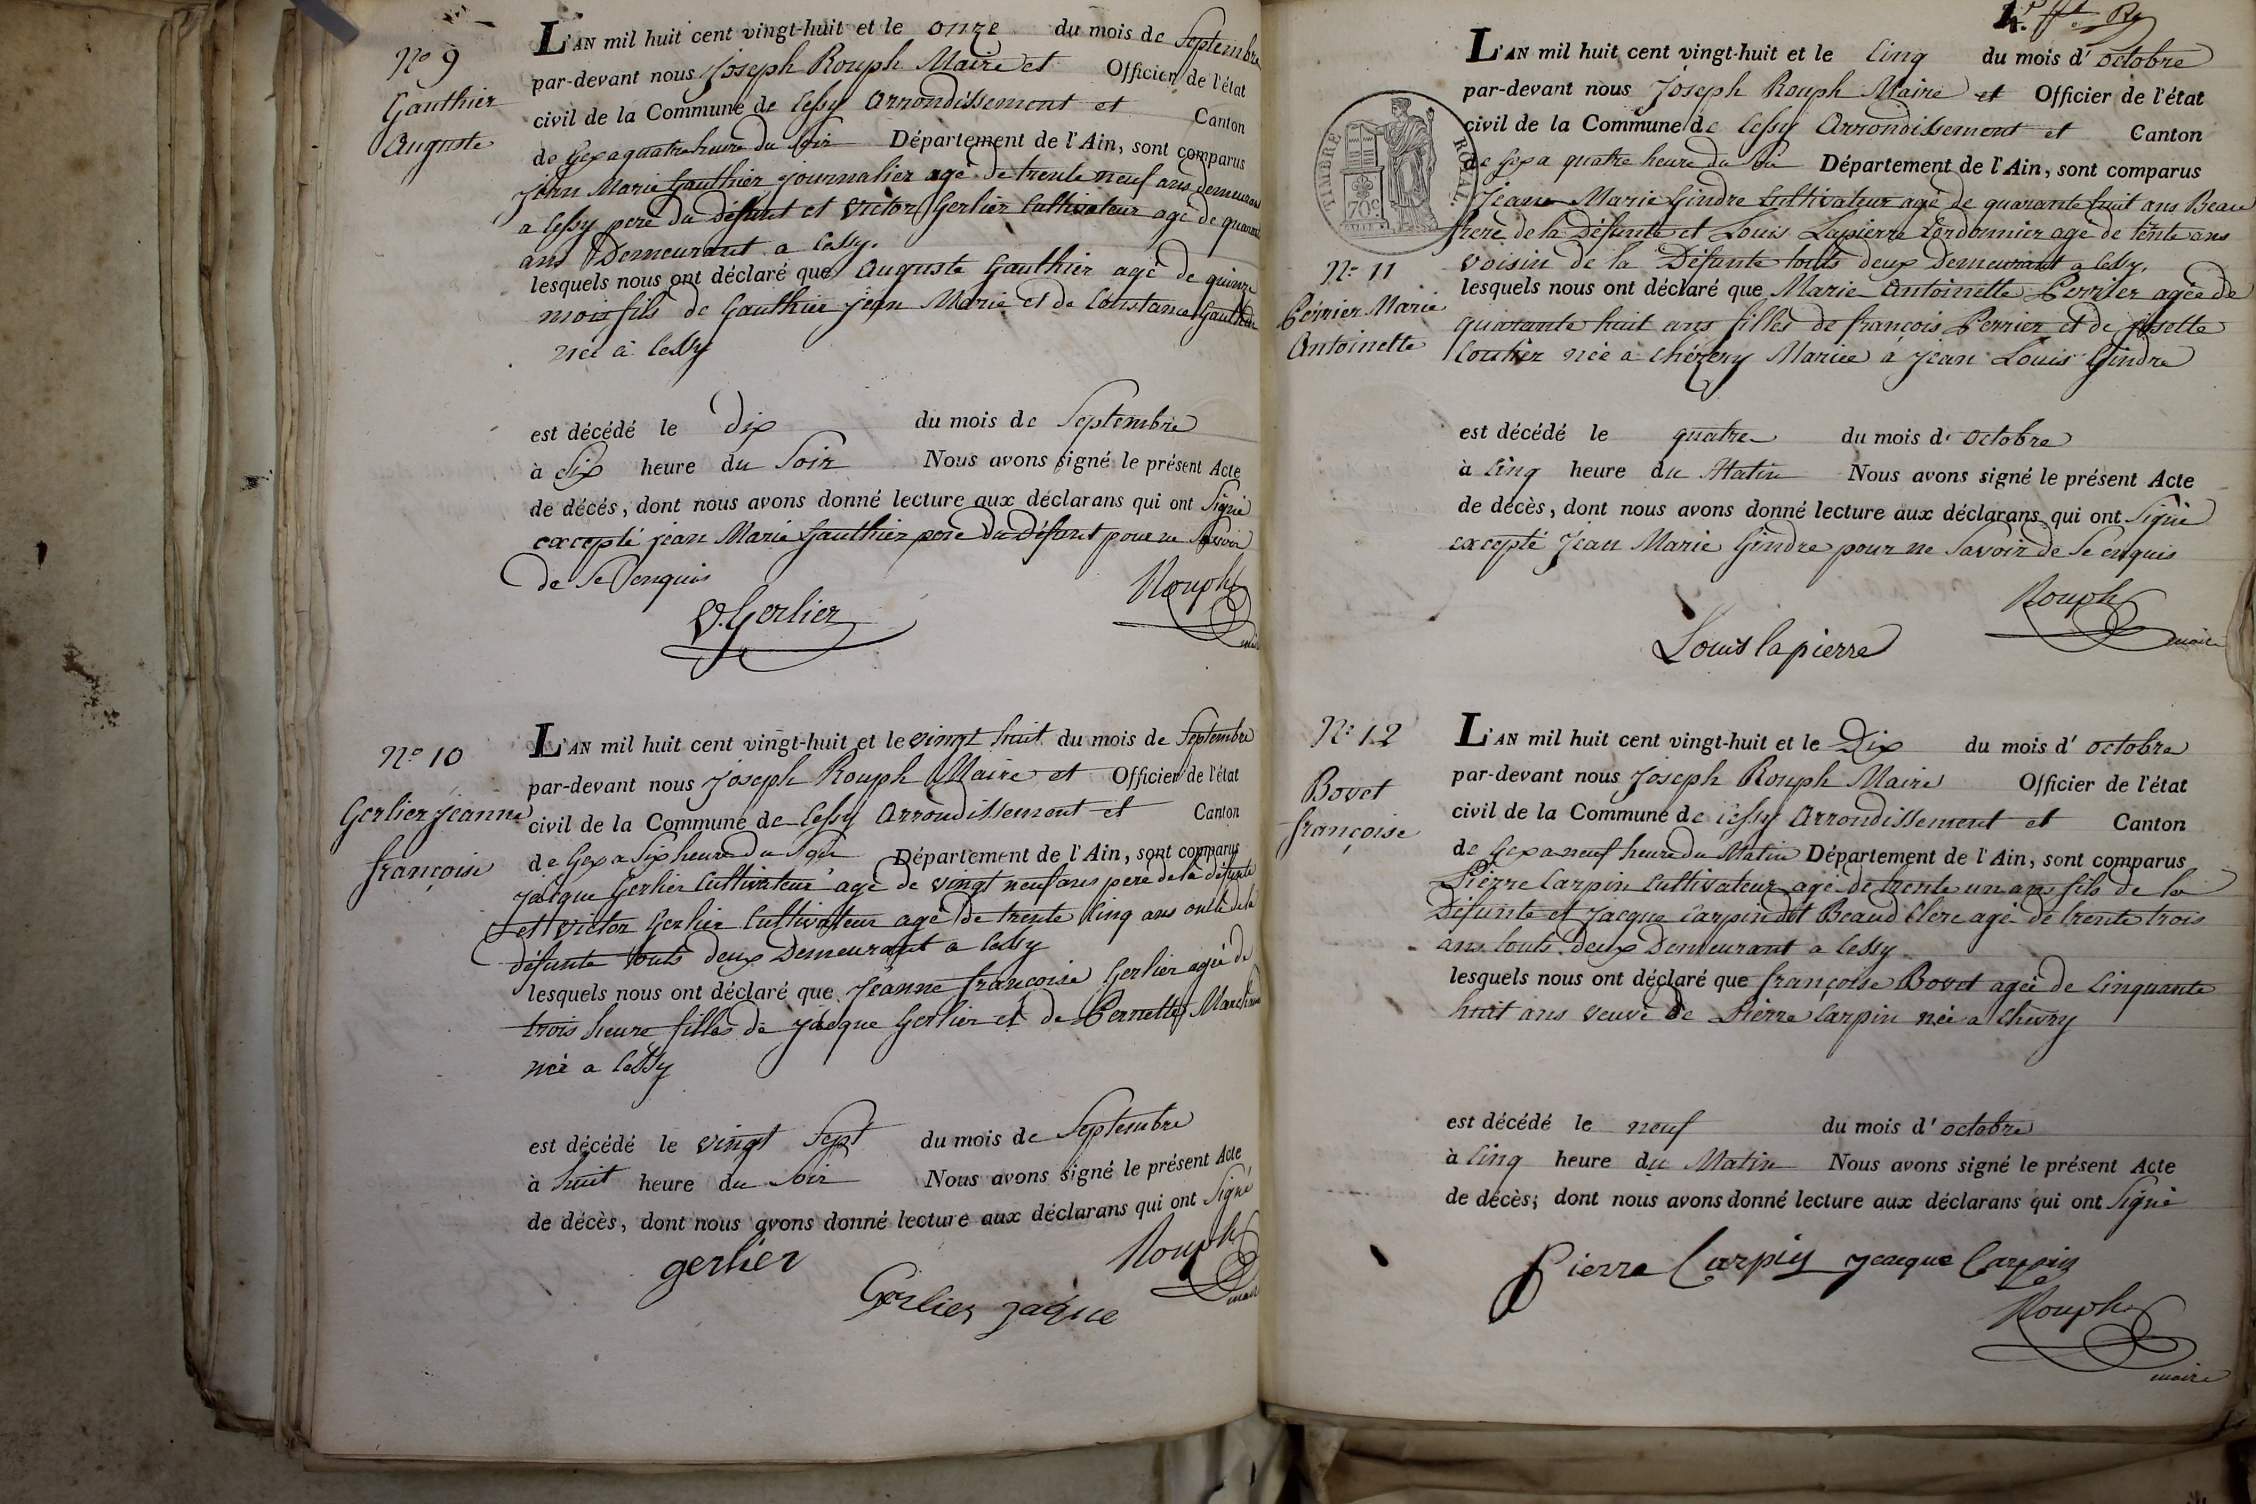 N° 9
Gauthier
Auguste
L'AN mil huit cent vingt-huit et le onze du mois de Septembre
par-devant nous Joseph Rouph Maire et Officier de l'état
civil de la Commune de Cessy Arrondissement et Canton
de Gex a quatre heure du Soir Département de l'Ain, sont comparus
Jean Marie Gauthier journalier agé de trente neuf ans demeurant
a Cessy pere du défunt et Victor Gerlier Cultivateur agé de
ans Demeurant a Cessy.
lesquels nous ont déclaré que Auguste Gauthier agé de quinze
mois fils de Gauthier Jean Marie et de Constance Gauthier
neé à Cessy
est décédé le dix du mois de Septembre
à Six heure du Soir Nous avons signé le présent Acte
de décés, dont nous avons donné lecture aux déclarans qui ont Signé
excepté jean Marie Gauthier pere du défunt pour ne Savoir
de Se enquis
V. Gerlier
Rouph
maire
N° 10
Gerlier jeanne
françoise
L'AN mil huit cent vingt-huit et le vingt huit du mois de Septembre
par-devant nous Joseph Rouph Maire et Officier de l'état
civil de la Commune de Cessy Arrondissement et Canton
de Gex a Six heure du Soir Département de l'Ain, sont comparus
jacque Gerlier Cultivateur agé de vingt neuf ans pere de la défunte
et Victor Gerlier Cultivateur agé de trente Cinq ans oncle de la
défunte touts deux Demeurant a Cessy
lesquels nous ont déclaré que Jeanne françoise Gerlier agée de
trois heure filles de jacque Gerlier et de Pernette
neé a Cessy
est décédé le vingt Sept du mois de Septembre
à huit heure du Soir Nous avons signé le présent Acte
de décès, dont nous avons donné lecture aux déclarans qui ont Signé
gerlier
Rouph
Gerlier jaque
maire
L'AN mil huit cent vingt-huit et le Cinq du mois d'octobre
par-devant nous Joseph Rouph Maire et Officier de l'état
civil de la Commune de Cessy Arrondissement et Canton
de Gex a quatre heure du Département de l'Ain, sont comparus
TIMBRE ROYAL
70c
Jean Marie Gindre Cultivateur agé de quarante huit ans Beau
frere de la Défunte et Louis Lapierre Cordonnier agé de tente ans
voisin de la Défunte touts deux Demeurant a Cessy.
N° 11
Perrier Marie
Antoinette
lesquels nous ont déclaré que Marie Antoinette Perrier agée de
quarante huit ans filles de françois Perrier et de josette
neé a Chézery Mariée à Jean Louis Gindre
est décédé le quatre du mois d'octobre
à Cinq heure du Matin Nous avons signé le présent Acte
de décès, dont nous avons donné lecture aux déclarans qui ont Signé
excepté Jean Marie Gindre pour ne Savoir de Se enquis
Rouph
maire
Louis lapierre
N° 12
Bovet
françoise
L'AN mil huit cent vingt-huit et le Dix du mois d'octobre
par-devant nous Joseph Rouph Maire Officier de l'état
civil de la Commune de Cessy Arrondissement et Canton
de Gex a neuf heure du Matin Département de l'Ain, sont comparus
Pierre Carpin Cultivateur agé de trente un ans fils de la
Défunte et Jacque Carpin dit Beau Clerc agé de trente trois
ans touts deux Demeurant a Cessy
lesquels nous ont déclaré que françoise Bovet agée de Cinquante
huit ans veuve de Pierre Carpin neé a Chevry
est décédé le neuf du mois d'octobre
à Cinq heure du Matin Nous avons signé le présent Acte
de décès; dont nous avons donné lecture aux déclarans qui ont Signé
Pierre Carpin Jacque Carpin
Rouph
maire